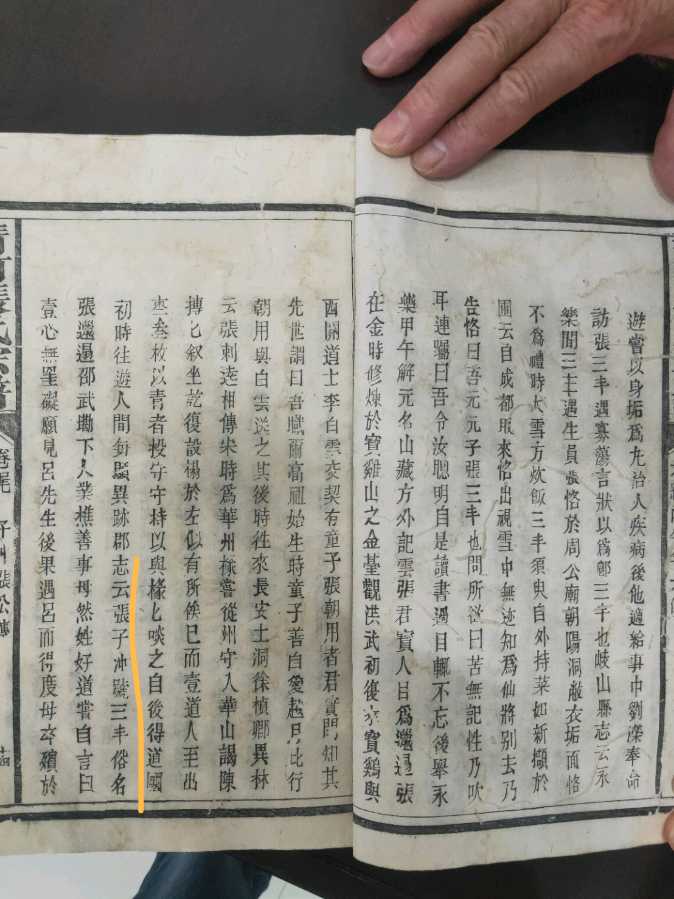 遊嘗以身垢爲丸治人疾病後他適給事中劉濼奉命
訪張三丰遇寡蕩言狀以爲鄭三丰也岐山縣志云永
樂間三丰遇生員張恪於周公廟朝陽洞敝衣垢面恪
不爲禮時大雪方炊飯三丰須臾自外持菜如新擷於
圃云自成都取來恪出視雪中無迹知爲仙將别去乃
告恪曰吾元元子張三丰也問所從曰苦無記性乃吹
耳連囑曰吾令汝聰明自是讀書過目輒不忘後舉永
樂甲午解元名山藏方外記雲張君實人目爲邋遢張
在金時修煉於寶雞山之金臺觀洪武初復於寶鷄與
酉關道士李白雲交契有童子張朝用者君實問知其
先世謂曰吾贓爾高祖始生時童子善自愛越月比行
朝用與白雲送之其後時往來長安土洞徐楨卿異林
云張刺達相傳宋時爲華州椽嘗從州守入華山謁陳
摶匕叙坐乾復設榻於左似有所候已而壹道人至出
棗叁枚以青者投守守持以與椽匕啖之自後得道國
初時往遊人間每顯異跡郡志云張子沖號三丰俗名
張邋遢邵武勘下人業樵善事母然姓好道嘗自言曰
壹心無罣礙願見呂先生後果遇呂而得度母卒殯於
清河張氏宗譜